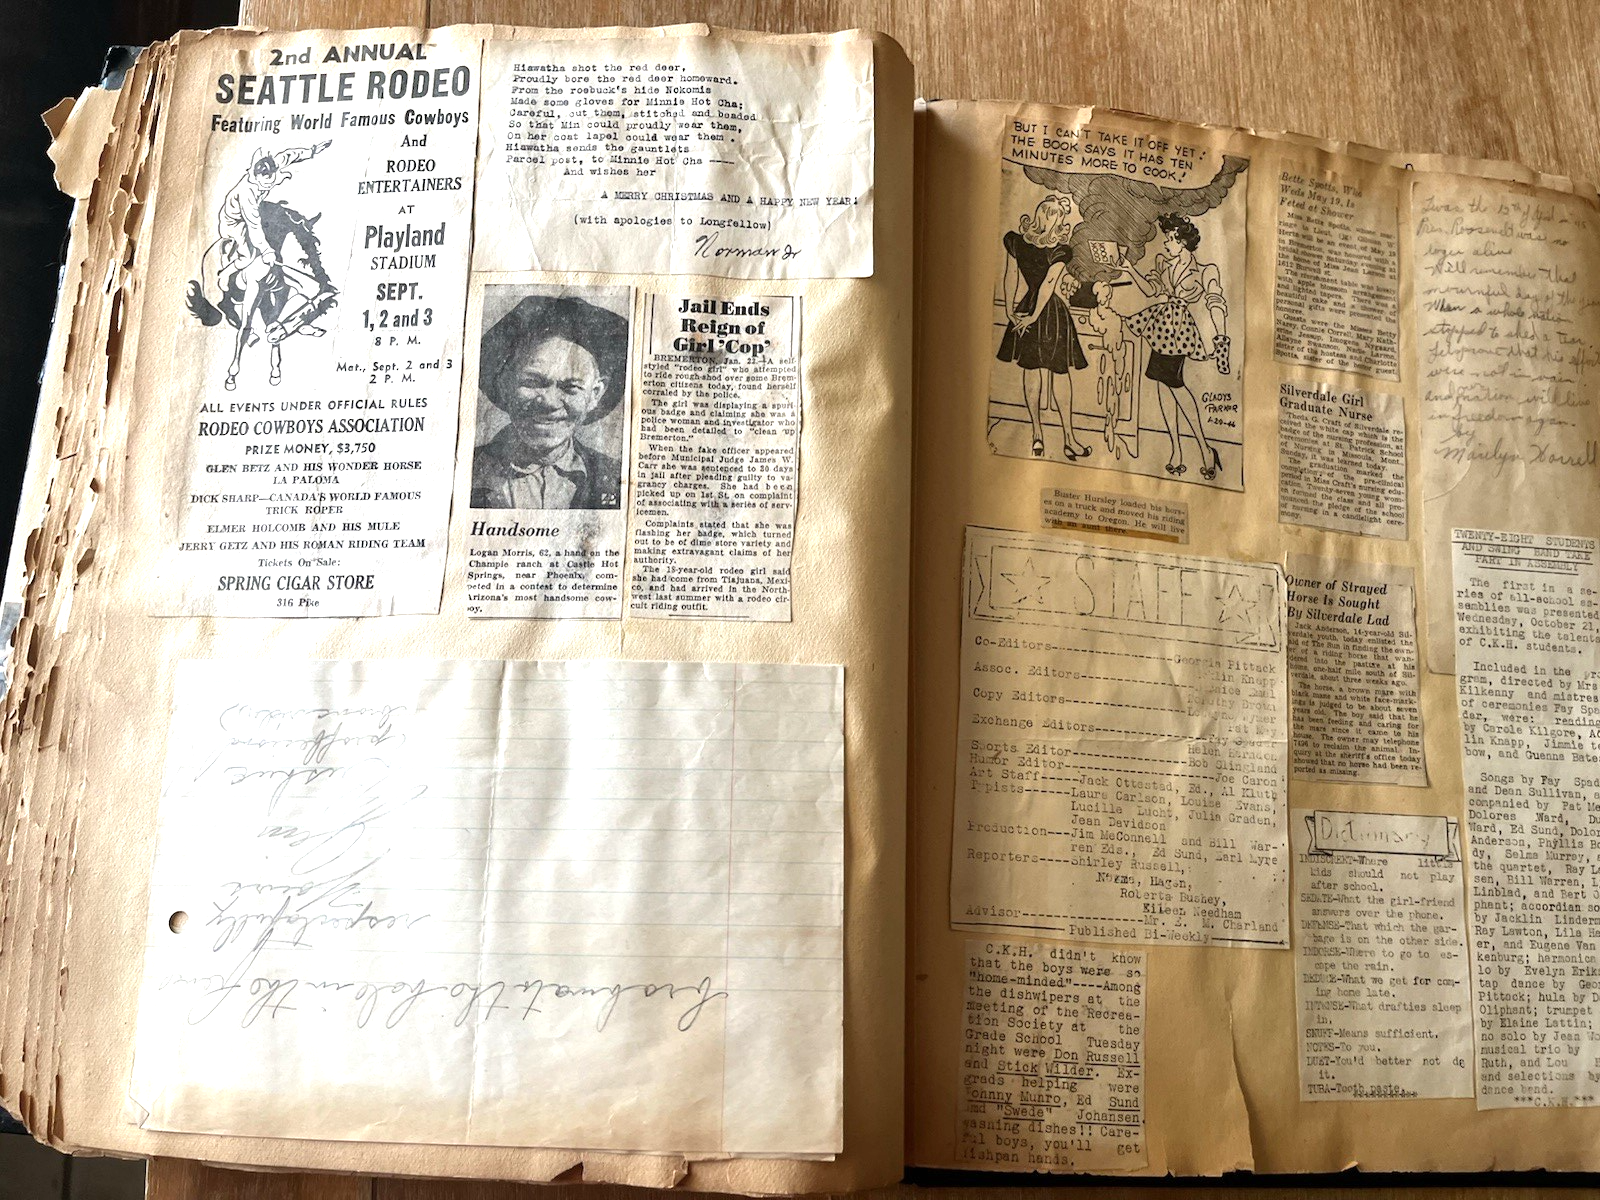 2nd ANNUAL
SEATTLE RODEO
Featuring World Famous Cowboys
And
RODEO
ENTERTAINERS
AT
Playland
STADIUM
SEPT.
1, 2 and 3
8 P. M.
Mat., Sept. 2 and 3
2 P. M.
ALL EVENTS UNDER OFFICIAL RULES
RODEO COWBOYS ASSOCIATION
PRIZE MONEY, $3,750
GLEN BETZ AND HIS WONDER HORSE
LA PALOMA
DICK SHARP—CANADA'S WORLD FAMOUS
TRICK ROPER
ELMER HOLCOMB AND HIS MULE
JERRY GETZ AND HIS ROMAN RIDING TEAM
Tickets On Sale:
SPRING CIGAR STORE
316 Pike
Hiawatha shot the red deer,
Proudly bore the red deer homeward.
From the roebuck's hide Nokomis
Made some gloves for Minnie Hot Cha;
Careful, cut them, stitched and beaded
So that Min could proudly wear them,
On her coat lapel could wear them.
Hiawatha sends the gauntlets
Parcel post, to Minnie Hot Cha ----
And wishes her
A MERRY CHRISTMAS AND A HAPPY NEW YEAR!
(with apologies to Longfellow)
Norman Jr
Handsome
Logan Morris, 62, a hand on the
Champie ranch at Castle Hot
Springs, near Phoenix, com-
peted in a contest to determine
Arizona's most handsome cow-
boy.
Jail Ends
Reign of
Girl 'Cop'
BREMERTON, Jan. 22.—A self-
styled "rodeo girl" who attempted
to ride rough-shod over some Brem-
erton citizens today, found herself
corraled by the police.
The girl was displaying a spuri-
ous badge and claiming she was a
police woman and investigator who
had been detailed to "clean up
Bremerton."
When the fake officer appeared
before Municipal Judge James W.
Carr she was sentenced to 30 days
in jail after pleading guilty to va-
grancy charges. She had been
picked up on 1st St. on complaint
of associating with a series of serv-
icemen.
Complaints stated that she was
flashing her badge, which turned
out to be of dime store variety and
making extravagant claims of her
authority.
The 18-year-old rodeo girl said
she had come from Tiajuana, Mexi-
co, and had arrived in the North-
west last summer with a rodeo cir-
cuit riding outfit.
brohwats the hole in the fence
respectfully
Yours
"BUT I CAN'T TAKE IT OFF YET!
THE BOOK SAYS IT HAS TEN
MINUTES MORE TO COOK!"
GLADYS
PARKER
1-29-46
Buster Hursley loaded his hors-
es on a truck and moved his riding
academy to Oregon. He will live
with an aunt there.
STAFF
Co-Editors Georgia Pittack
lin Knapp
Assoc. Editors
Copy Editors Dorothy Brown
Exchange Editors Pat May
Fay Spadar
Sports Editor Helen Harndon
Humor Editor Bob Slingland
Joe Caron
Art Staff-----Jack Ottestad, Ed., Al Kluth
Typists------Laura Carlson, Louise Evans,
Lucille Lucht, Julia Graden,
Jean Davidson
Production---Jim McConnell and Bill War-
ren Eds., Ed Sund, Earl Myre
Reporters----Shirley Russell,
Norma, Hagen,
Roberta Bushey,
Eileen Needham
Advisor Mr. S. M. Charland
Published Bi-Weekly
C.K.H. didn't know
that the boys were so
"home-minded"----Among
the dishwipers at the
meeting of the Recrea-
tion Society at the
Grade School Tuesday
night were Don Russell
and Stick Wilder. Ex-
grads helping were
Johnny Munro, Ed Sund
and "Swede" Johansen,
washing dishes!! Care-
ful boys, you'll get
dishpan hands.
Bette Spotts, Who
Weds May 19, Is
Feted at Shower
Silverdale Girl
Graduate Nurse
Theda G. Craft of Silverdale re-
ceived the white cap which is the
badge of the nursing profession, at
ceremonies at St. Patrick School
of Nursing in Missoula, Mont.,
Sunday, it was learned today.
The graduation marked the
completion of the pre-clinical
period in Miss Craft's nursing edu-
cation. Twenty-seven young wom-
en formed the class and all pro-
nounced the pledge of the school
of nursing in a candlelight cere-
mony.
Owner of Strayed
Horse Is Sought
By Silverdale Lad
Jack Anderson, 14-year-old Sil-
verdale youth, today enlisted the
aid of The Sun in finding the own-
er of a riding horse that wan-
dered into the pasture at his
home, one-half mile south of Sil-
verdale, about three weeks ago.
The horse, a brown mare with
black mane and white face-mark-
ings is judged to be about seven
years old. The boy said that he
has been feeding and caring for
the mare since it came to his
house. The owner may telephone
7496 to reclaim the animal. In-
quiry at the sheriff's office today
showed that no horse had been re-
ported as missing.
Dictionary
INDISCREET-Where little
kids should not play
after school.
SEDATE-What the girl-friend
answers over the phone.
DEFENSE-That which the gar-
bage is on the other side.
INDORSE-Where to go to es-
cape the rain.
DEDUCE-What we get for com-
ing home late.
INTENSE-What drafties sleep
in.
SNUFF-Means sufficient.
NOTES-To you.
DUET-You'd better not do
it.
TUBA-Tooth paste.
Twas the 13th of April in '45
Pres. Roosevelt was no
longer alive
We'll remember that
mournful day
When a whole nation
stopped to shed a tear.
were not in vain
and nation will live
in freedom again.
By
Marilyn Worrell
TWENTY-EIGHT STUDENTS
AND SWING BAND TAKE
PART IN ASSEMBLY
The first in a se-
ries of all-school as-
semblies was presented
Wednesday, October 21,
exhibiting the talents
of C.K.H. students.
Included in the pro
gram, directed by Mrs
Kilkenny and mistres
of ceremonies Fay Spa
dar, were: reading
by Carole Kilgore,
lin Knapp, Jimmie
bow, and Guenna Bate
Songs by Fay Spad
and Dean Sullivan, a
companied by Pat Me
Dolores Ward, Du
Ward, Ed Sund, Dolor
Anderson, Phyllis Bo
dy, Selma Murray,
the quartet, Ray
sen, Bill Warren,
Linblad, and Bert
phant; accordian so
by Jacklin Linderm
Ray Lawton, Lila Ha
er, and Eugene Van
kenburg; harmonica
lo by Evelyn Eriks
tap dance by Geor
Pittock; hula by D
Oliphant; trumpet
by Elaine Lattin;
no solo by Jean Wo
musical trio by
Ruth, and Lou H
and selections by
dance band.
***C.K.H.***